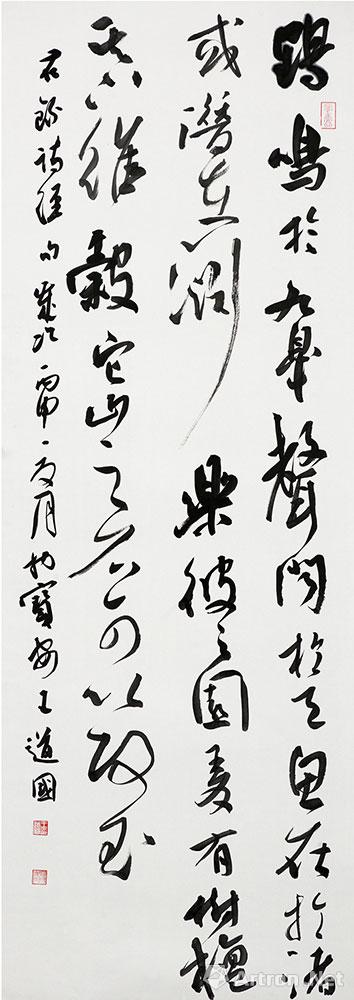 鶴鳴於九皋聲聞於天魚在於渚
或潛在淵樂彼之園爰有樹檀
其下維穀它山之石可以攻玉
右錄詩經句歲次丙申夏月於寶安王道國
Artron.Net